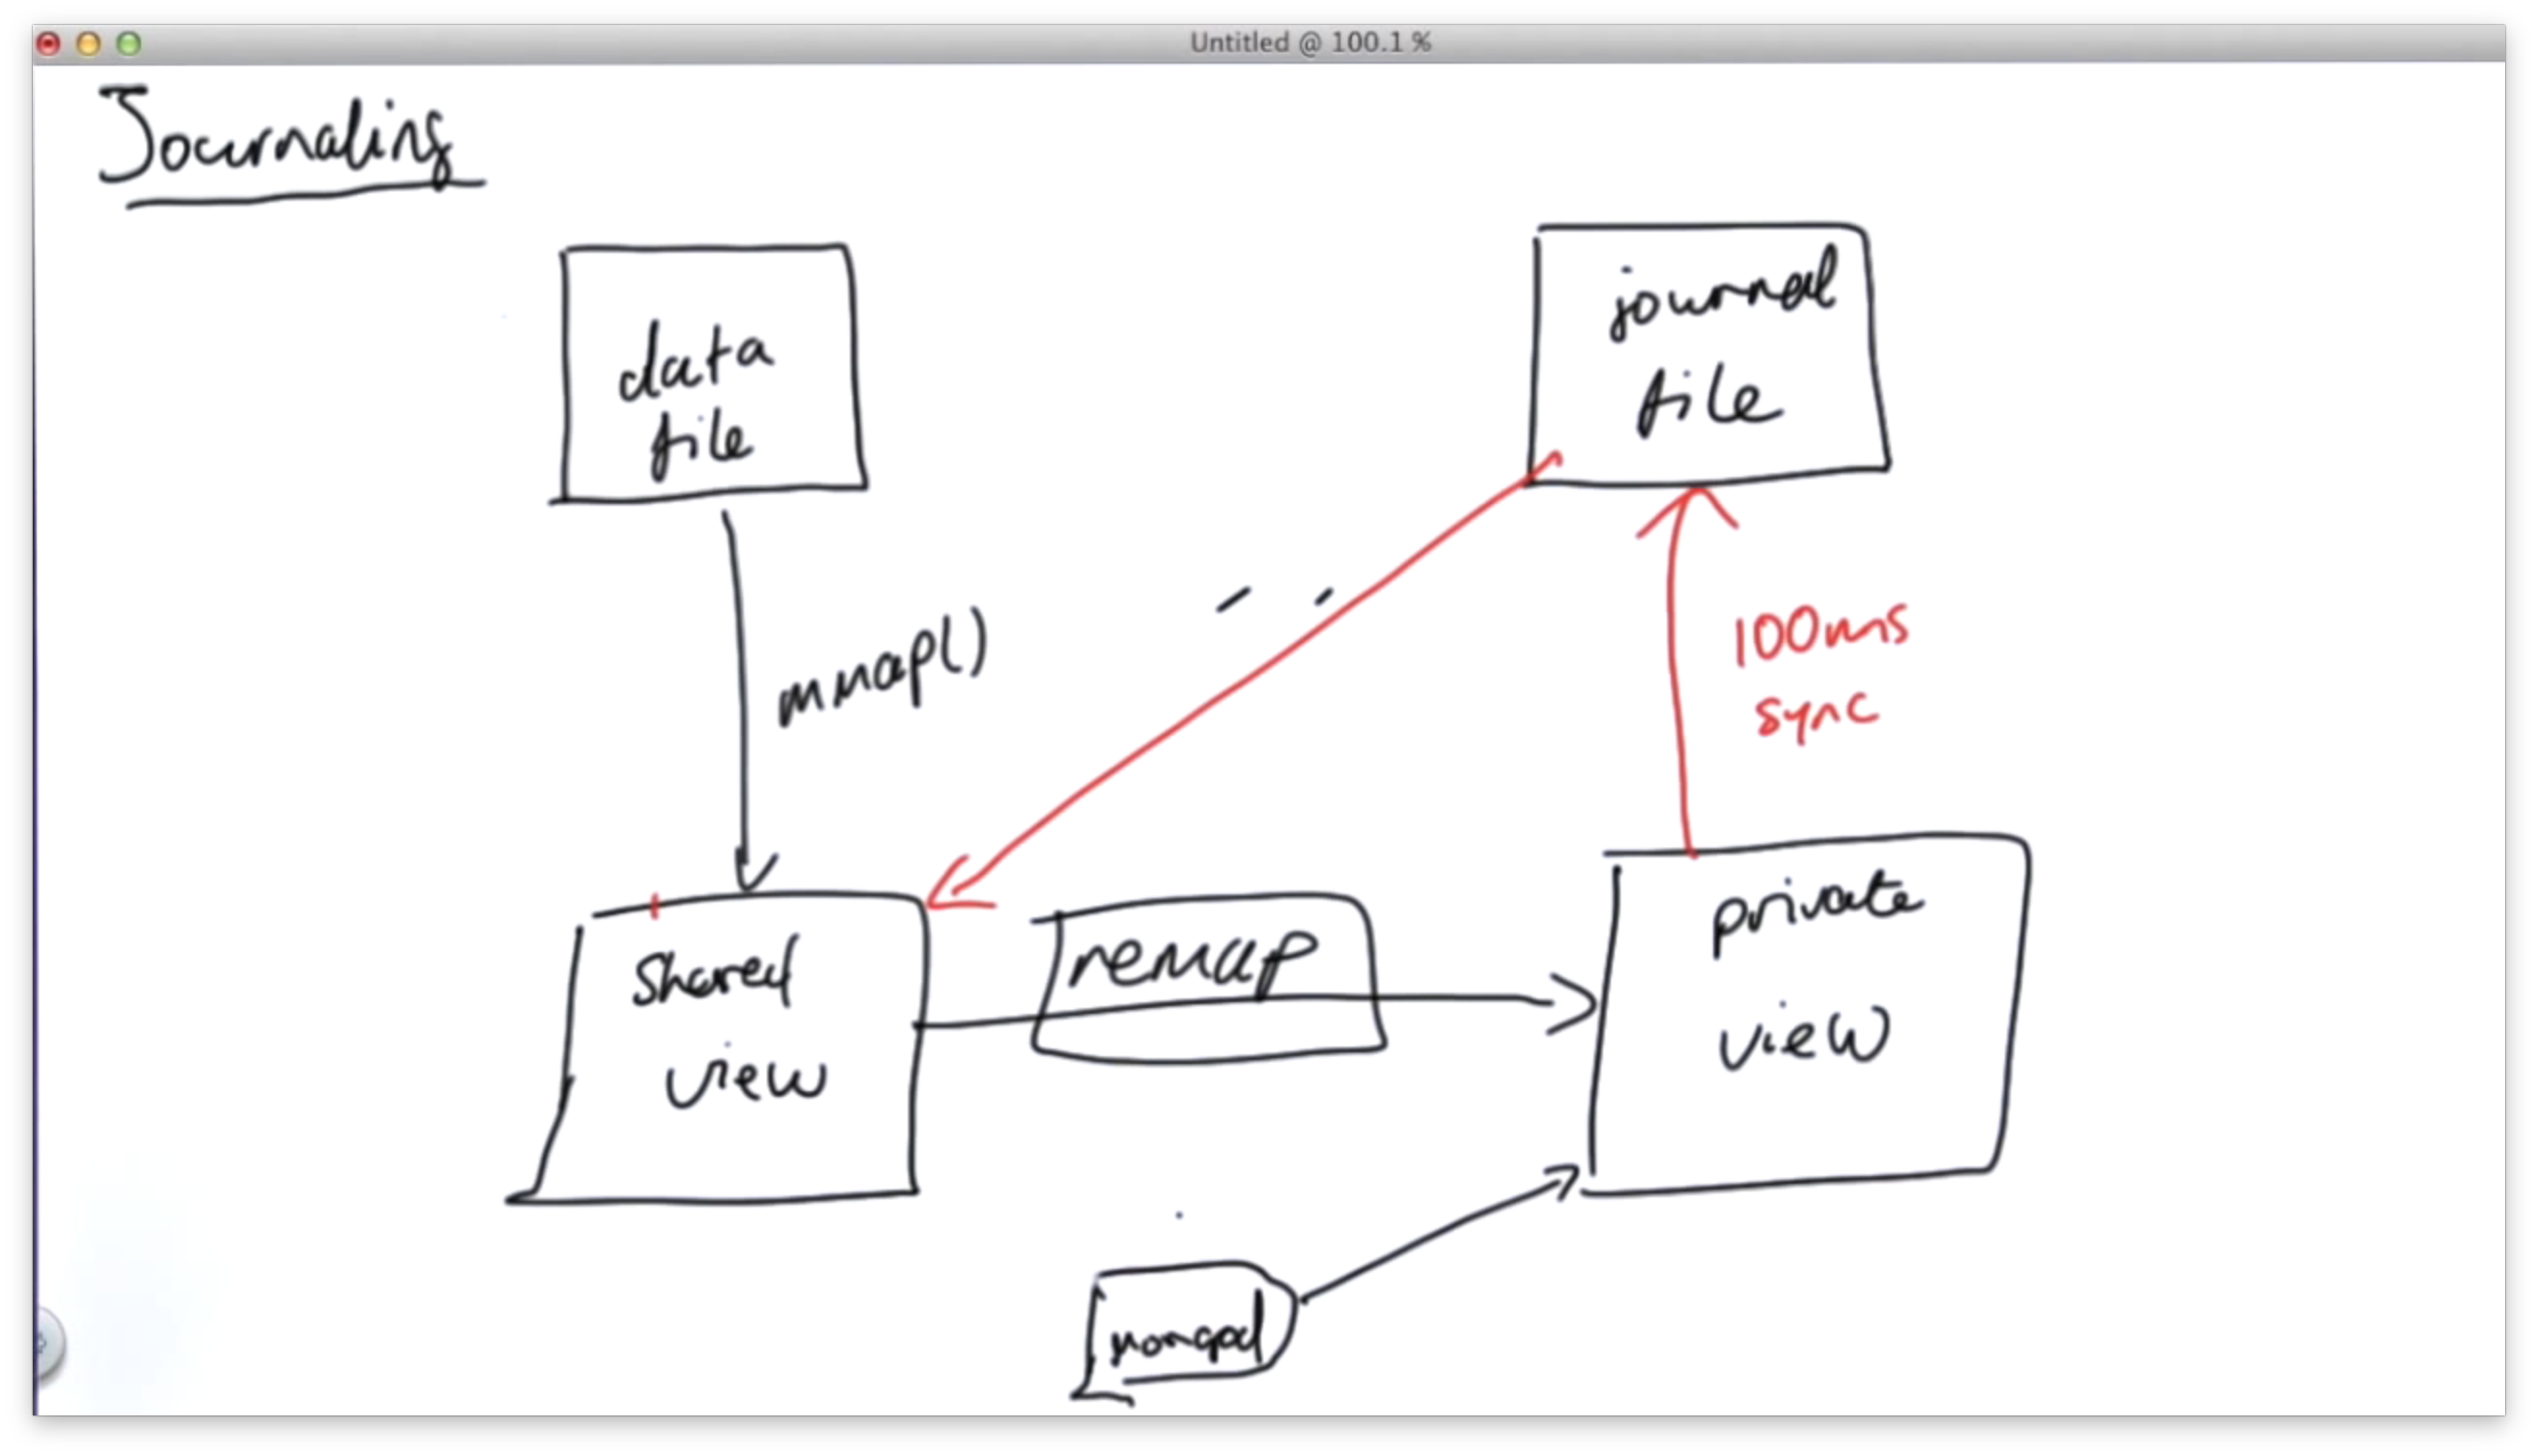 Untitled @ 100.1 %
Journaling
data
file
journal
file
mmap()
100ms
sync
shared
view
remap
private
view
mongod